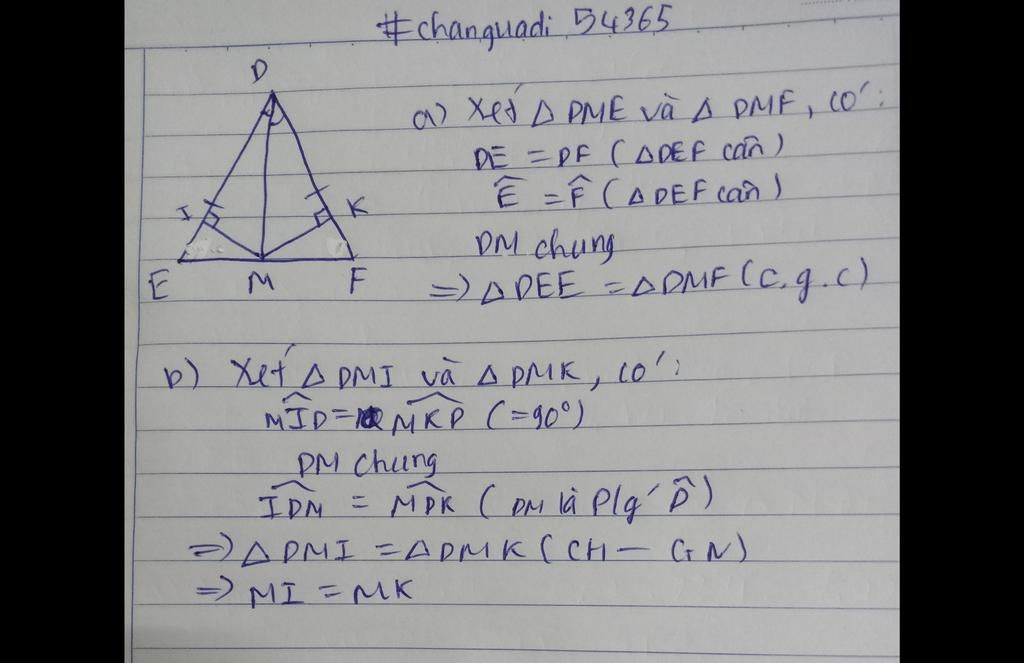 #changuadi 54365
D
I
K
E
M
F
a) Xét △ DME và △ DMF, có:
DE = DF (△DEF cân)
Ê = F̂ (△DEF cân)
DM chung
=> △DEE = △DMF (c.g.c)
b) Xét △ DMI và △ DMK, có:
MÎD = MK̂D (=90°)
DM chung
ID̂M = MD̂K (DM là p/g' D̂)
=> △DMI = △DMK (CH – GN)
=> MI = MK